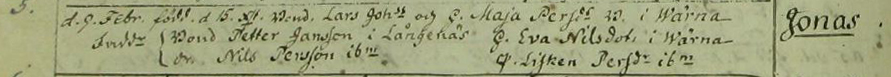 5.
d. 9. Febr. född. d. 15. Xt. Bond. Lars Johss. og H. Maja Persd. V. i Wärna
Jonas
Faddr Bond Petter Jansson i Långenäs P. Eva Nilsdotr i Wärna
Dr. Nils Persson ibm P. Lisken Persdr ibm